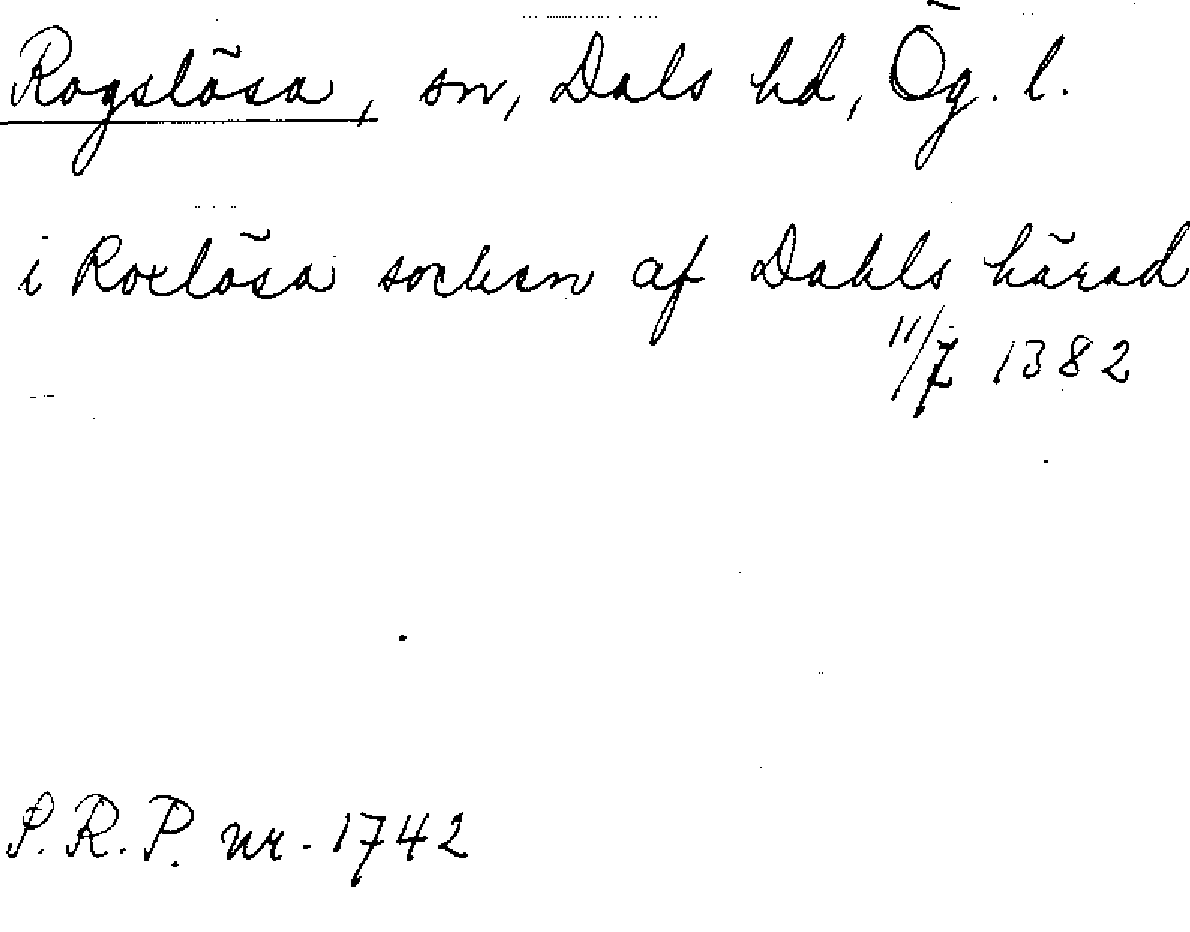 Rogslösa, sn, Dals hd, Ög. l.
i Roxlösa socken af Dahls härad
11/7 1382
S.R.P. nr. 1742